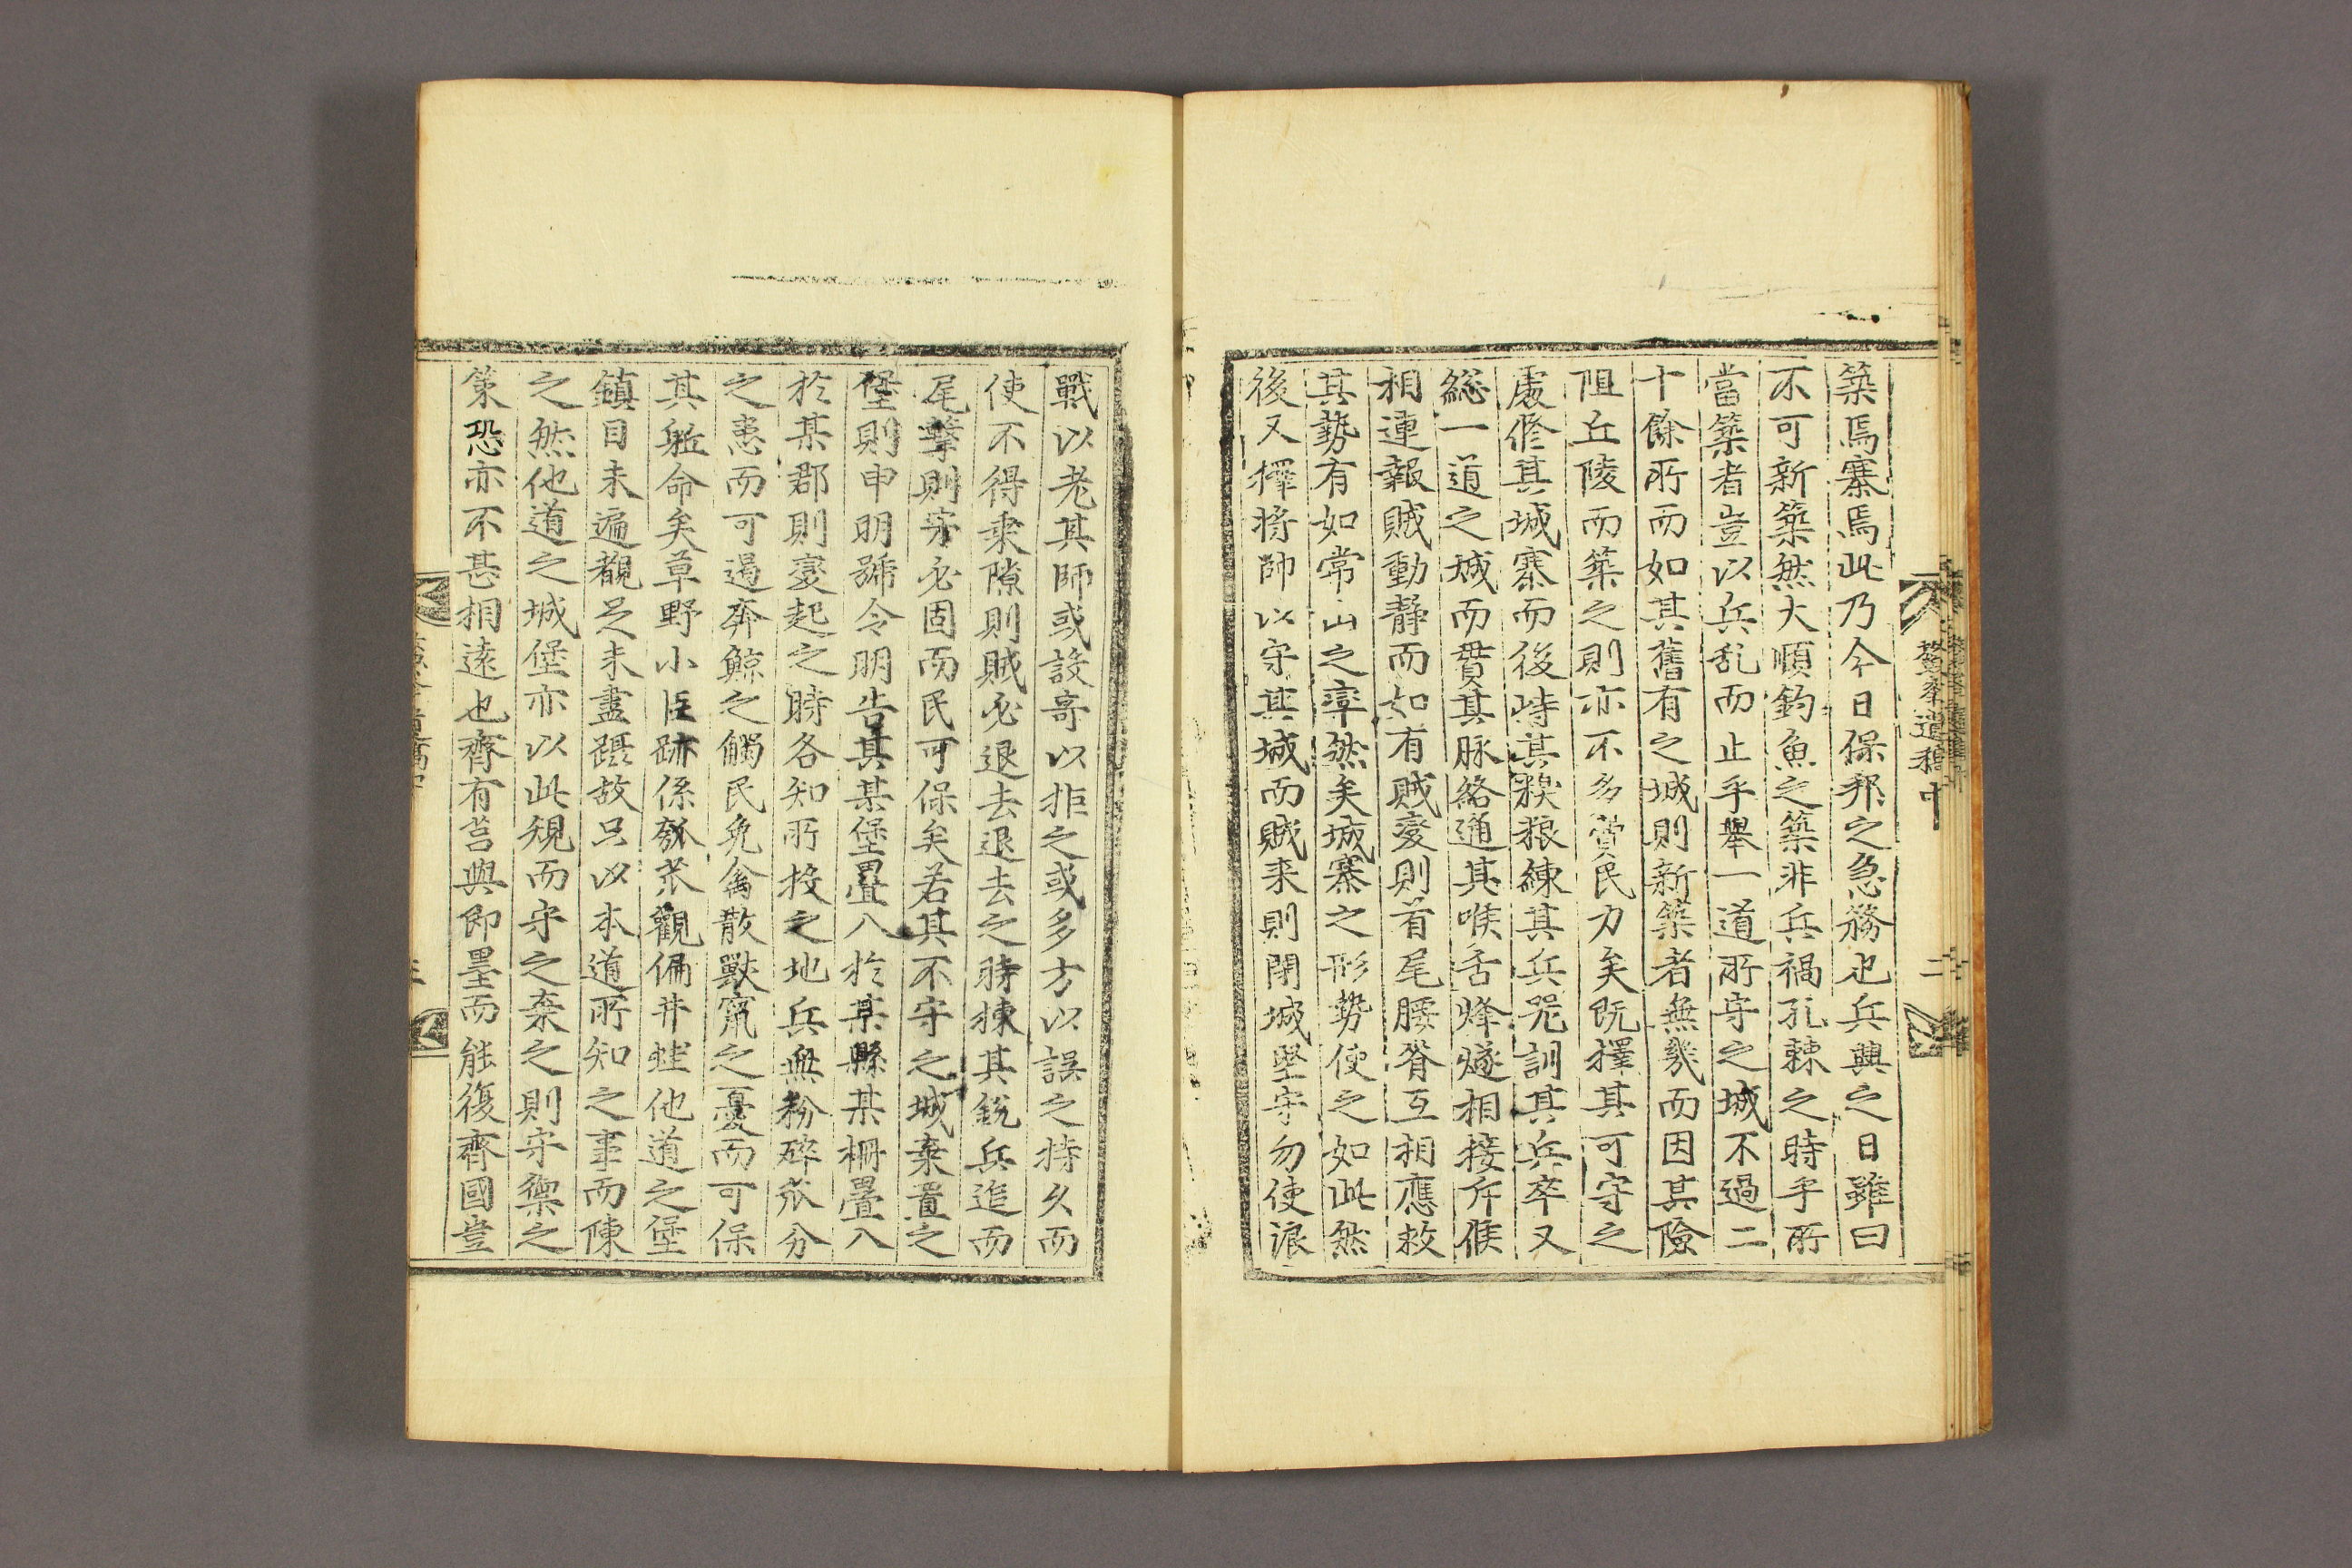 築焉寨焉此乃今日保邦之急務也兵興之日雖曰
不可新築然大順釣魚之築非兵禍孔棘之時乎所
當築者豈以兵乱而止乎舉一道所守之城不過二
十餘所而如其舊有之城則新築者無幾而因其險
阻丘陵而築之則亦不多費民力矣既擇其可守之
處修其城寨而後峙其糗粮練其兵咒訓其兵卒又
総一道之城而貫其脉絡通其喉舌烽燧相接斥候
相連報賊動静而如有賊变則首尾腰脊互相應救
其勢有如常山之率然矣城寨之形勢使之如此然
後又擇將帥以守其城而賊来則閉城堅守勿使浪
戰以老其師或設奇以拒之或多方以誤之持久而
使不得乗隙則賊必退去退去之時揀其鋭兵追而
尾擊則守必固而民可保矣若其不守之城棄置之
堡則申明號令明告其某堡疊入於某縣某柵疊入
於某郡則变起之時各知所投之地兵無粉碎派分
之患而可遏奔鯨之觸民免禽散獸竄之憂而可保
其躯命矣草野小臣跡係瓠苽觀偏井蛙他道之堡
鎮目未遍覩足未盡躡故只以本道所知之事而陳
之然他道之城堡亦以此規而守之棄之則守禦之
策恐亦不甚相遠也齊有莒與即墨而能復齊國豈
贅峯遺稿中
二